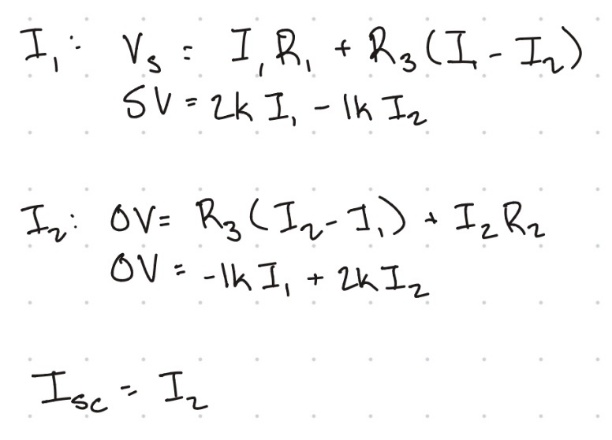 I₁: Vₛ = I₁R₁ + R₃(I₁ - I₂)
5V = 2k I₁ - 1k I₂
I₂: 0V = R₃(I₂ - I₁) + I₂R₂
0V = -1k I₁ + 2k I₂
I_sc = I₂